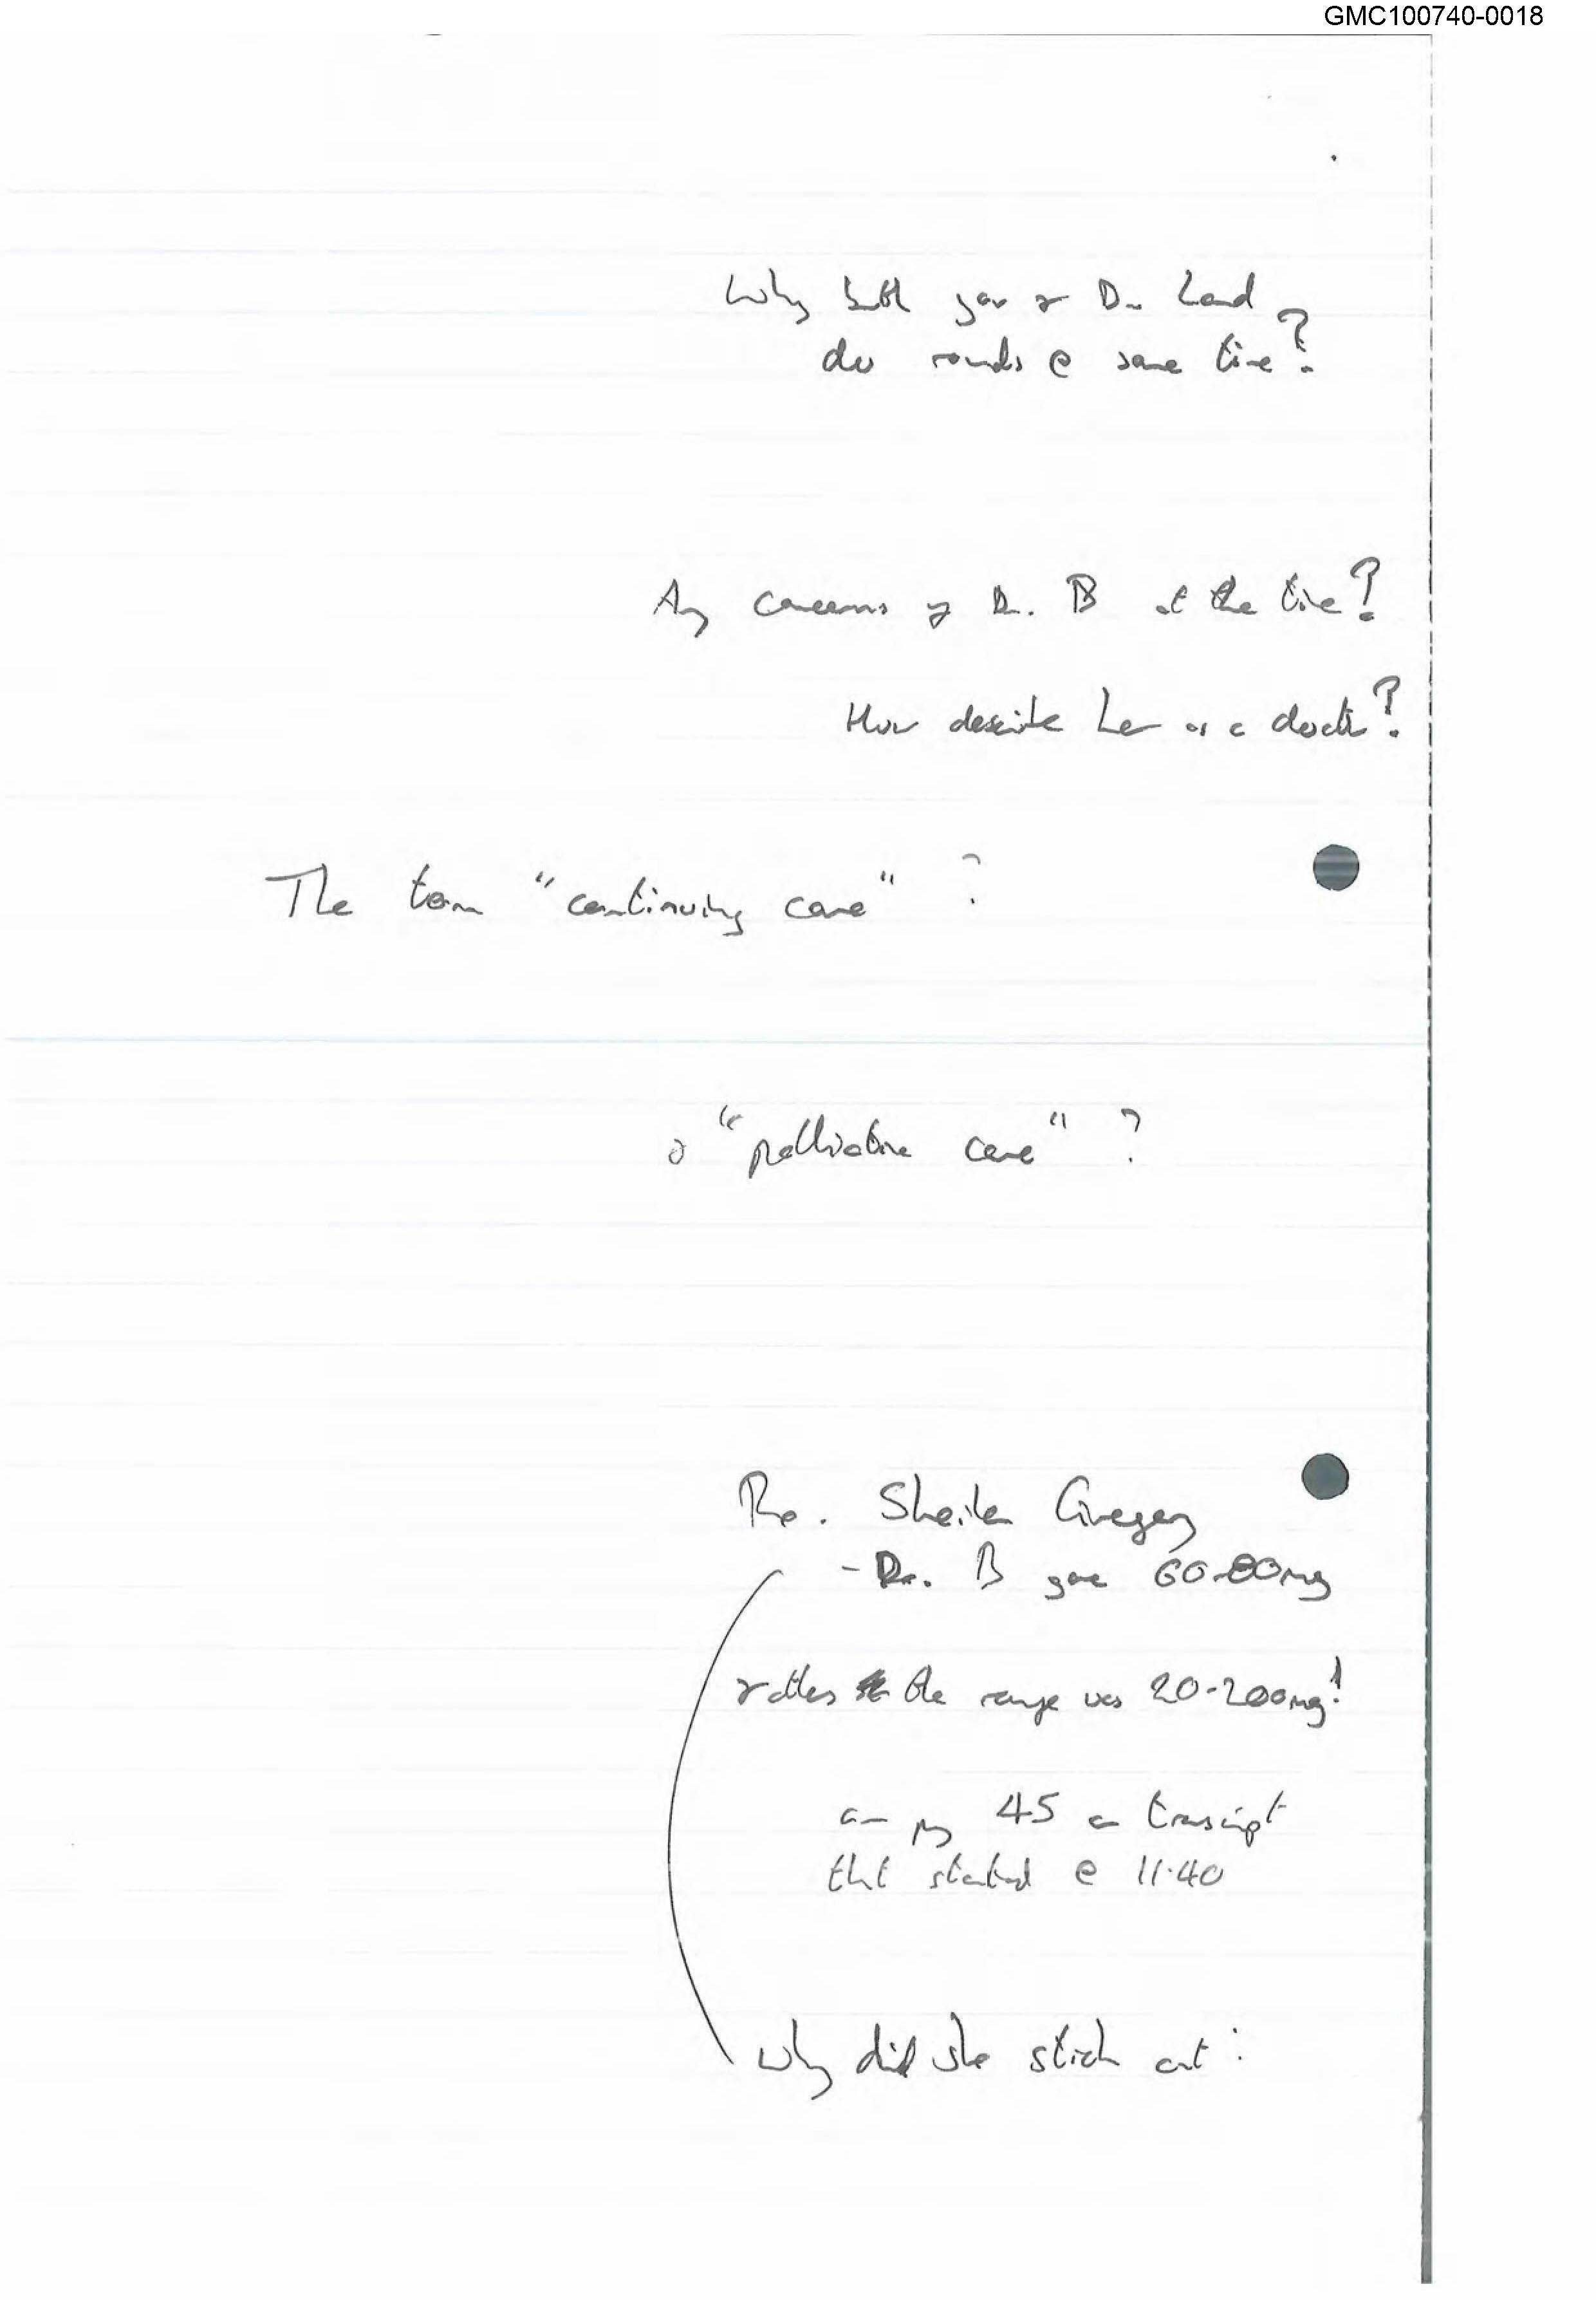 GMC100740-0018
Why both you & Dr. Lord
do rounds @ same time?
Any concerns of Dr. B at the time?
How describe her as a doctor?
The term "continuing care" ?
or "palliative care" ?
Re. Sheila Gregory
- Dr. B gave 60-80mg
rather the range was 20-200mg!
on pg 45 on transcript
tht started @ 11.40
Why did she stick out?